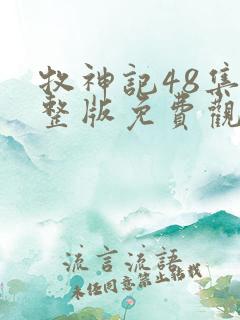 牧神記48集
整版免費觀
流言流語
未经同意禁止转载